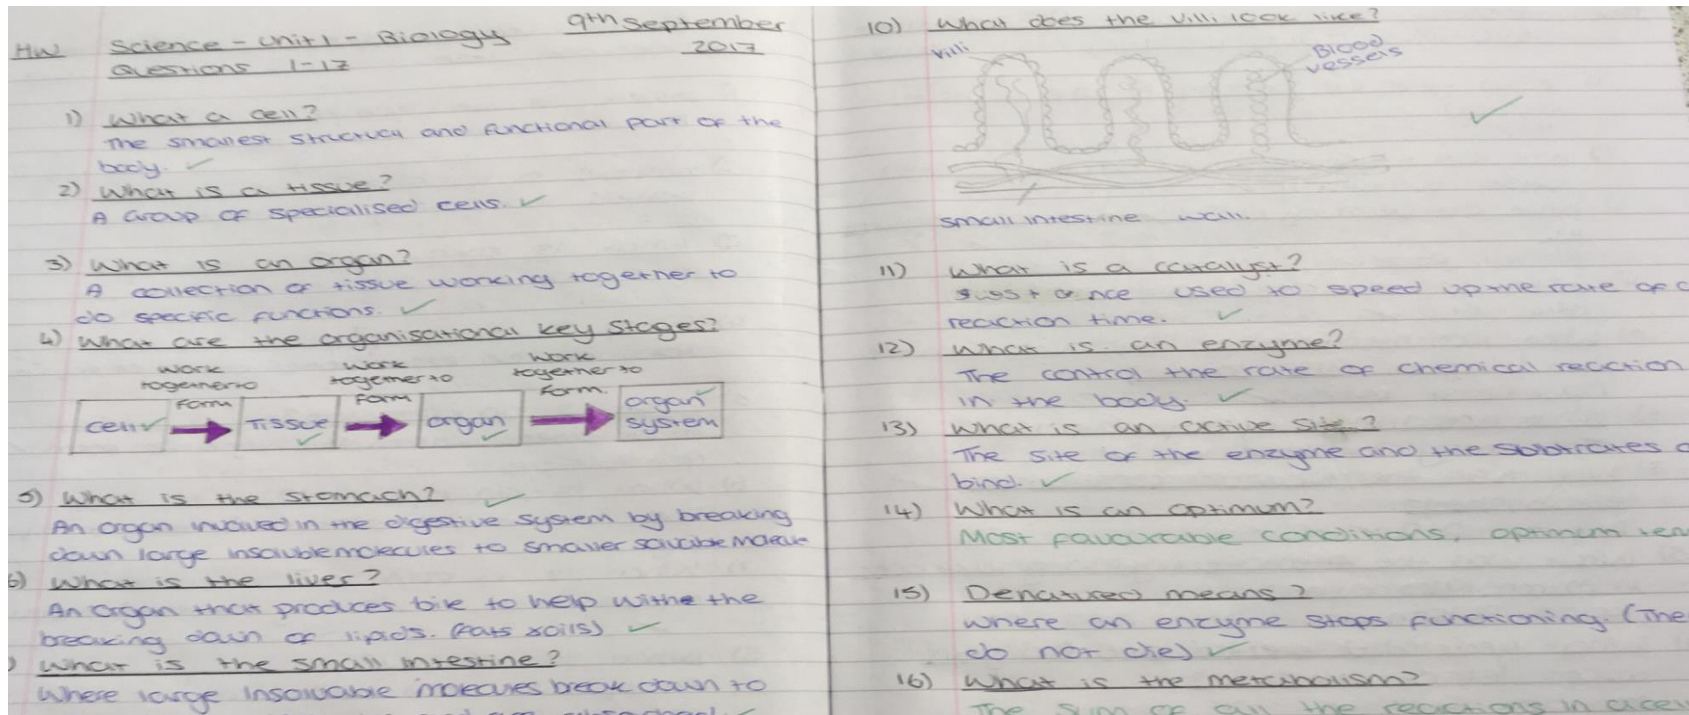 HW Science - Unit 1 - Biology 9th September
Questions 1-17 2017
1) What a cell?
The smallest structural and functional part of the
body.
2) What is a tissue?
A Group of specialised cells.
3) What is an organ?
A collection of tissue working together to
do specific functions.
4) What are the organisational key stages?
work work work
together to together to together to
form form form.
cell Tissue organ organ
system
5) What is the stomach?
An organ involved in the digestive system by breaking
down large insoluble molecules to smaller soluable
6) What is the liver?
An organ that produces bile to help withe the
breaking down of lipids. (fats & oils)
) What is the small intestine?
Where large insoluable molecules break down to
10) What does the villi look like?
villi Blood
vessels
small intestine wall.
11) What is a catalyst?
substance used to speed up the rate of
reaction time.
12) What is an enzyme?
The control the rate of chemical reaction
in the body.
13) What is an active site?
The site of the enzyme and the substrates
bind.
14) What is an optimum?
Most favourable conditions, optimum
15) Denatured means?
where an enzyme stops functioning. (The
do not die)
16) What is the metabolism?
The sum of all the reactions in a